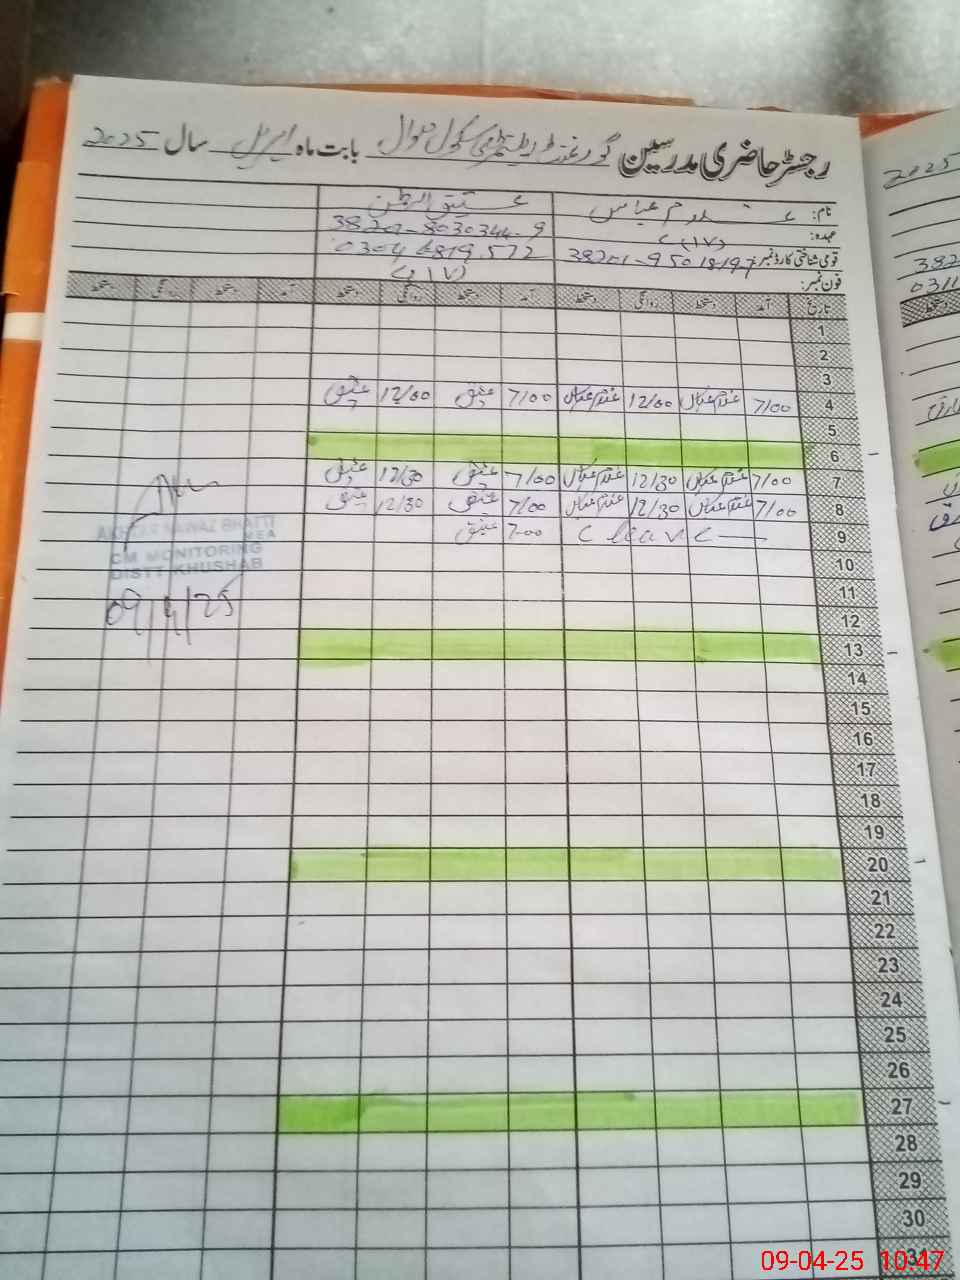 رجسٹر حاضری مدرسین گورنمنٹ سکول بابت ماہ اپریل سال 2025
نام: غلام عباس عتیق الرحمن
عہدہ: 38201-8030344-9
قومی شناختی کارڈ نمبر: 38201-9501819-7 0304 6819572
فون نمبر:
تاریخ آمد دستخط روانگی دستخط آمد دستخط روانگی دستخط آمد دستخط روانگی دستخط
1
2
3
4 7/00 غلام عباس 12/00 غلام عباس 7/00 عتیق 12/00 عتیق
5
6
7 7/00 غلام عباس 12/30 غلام عباس 7/00 عتیق 12/30 عتیق
8 7/00 غلام عباس 12/30 غلام عباس 7/00 عتیق 12/30 عتیق
9 C leave 7-00 عتیق
10
11
12
13
14
15
16
17
18
19
20
21
22
23
24
25
26
27
28
29
30
31
AKHTAR NAWAZ BHATTI
MEA
CM MONITORING
DISTT KHUSHAB
09/4/25
2025
382
0311
09-04-25 10:47